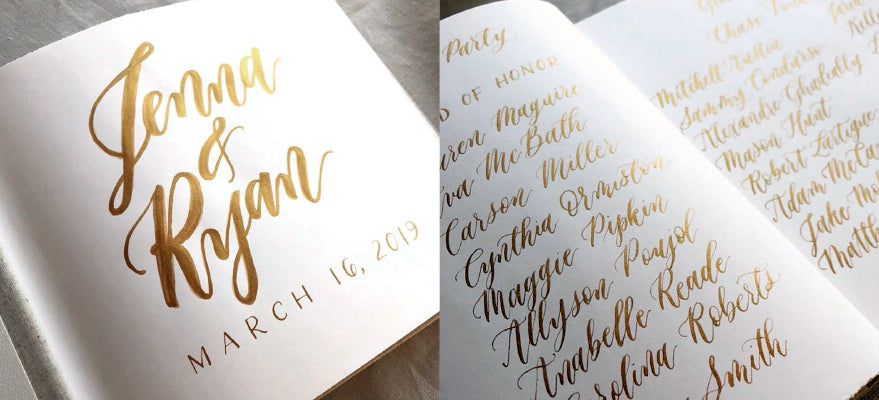 Jenna
&
Ryan
MARCH 16, 2019
Party
OF HONOR
Maguire
McBath
Carson Miller
Cynthia Ormiston
Maggie Pipkin
Allyson Poujol
Anabelle Reade
Roberts
Smith
Chase
Mitchell Austin
Sammy Condurso
Alexandre Ghadially
Mason Hunt
Robert Lartigue
Adam
Jake